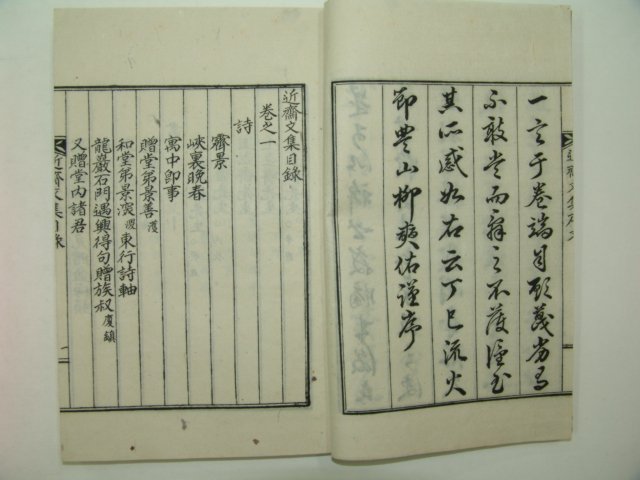 一言于卷端自顧蔑劣烏
不敢當而辭之不獲謹書
其所感如右云丁巳流火
節豊山柳奭佑謹序
近齋文集序文
近齋文集目錄
卷之一
詩
霽景
峽裏晚春
寓中卽事
贈堂弟景善
和堂弟景深東行詩軸
龍巖石門遇興得句贈族叔廈鎭
又贈堂內諸君
近齋文集目錄
一